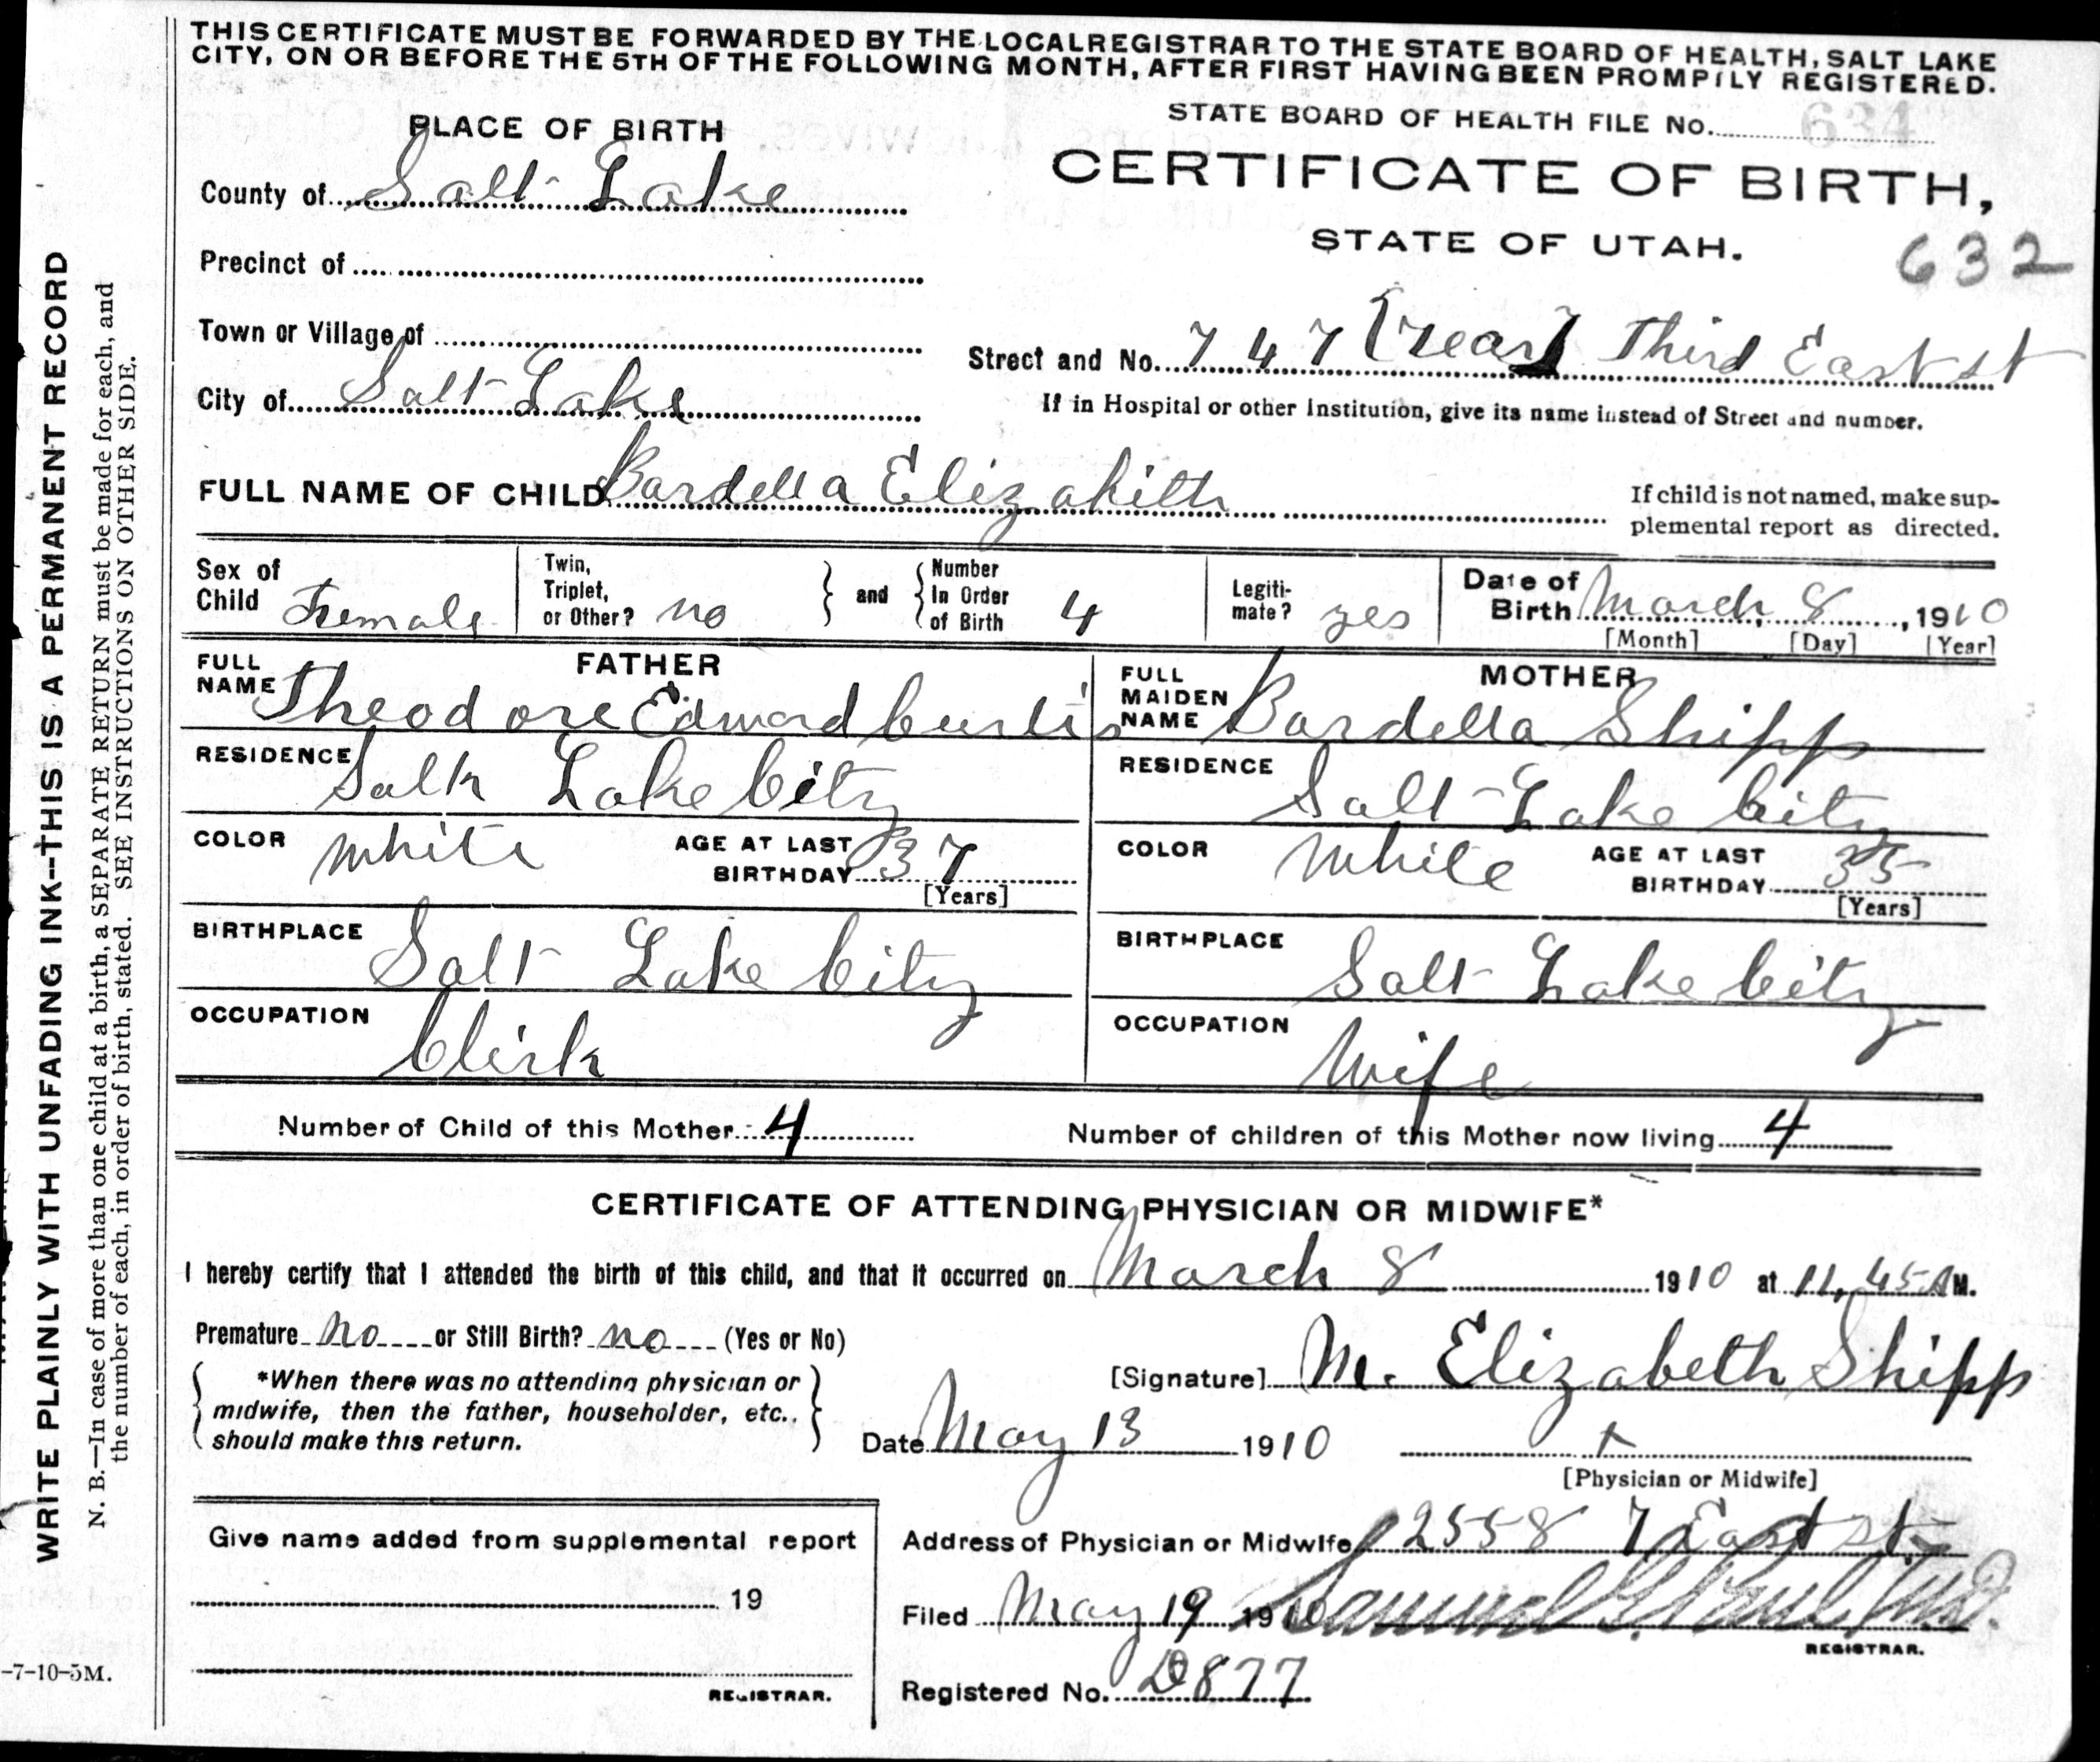 THIS CERTIFICATE MUST BE FORWARDED BY THE LOCAL REGISTRAR TO THE STATE BOARD OF HEALTH, SALT LAKE
CITY, ON OR BEFORE THE 5TH OF THE FOLLOWING MONTH, AFTER FIRST HAVING BEEN PROMPTLY REGISTERED.
STATE BOARD OF HEALTH FILE No. 634
PLACE OF BIRTH
CERTIFICATE OF BIRTH,
County of Salt Lake
STATE OF UTAH.
632
Precinct of
Town or Village of
Street and No. 747 [rear] Third East st
City of Salt Lake
If in Hospital or other Institution, give its name instead of Street and number.
FULL NAME OF CHILD Bardella Elizabeth
If child is not named, make sup-
plemental report as directed.
Sex of Child Female
Twin, Triplet, or Other? no
and
Number In Order of Birth 4
Legiti-mate? yes
Date of Birth March, 8, 1910
[Month] [Day] [Year]
FATHER
FULL NAME Theodore Edward Curtis
RESIDENCE Salt Lake City
COLOR White AGE AT LAST BIRTHDAY 37
[Years]
BIRTHPLACE Salt Lake City
OCCUPATION Clerk
MOTHER
FULL MAIDEN NAME Bardella Shipp
RESIDENCE Salt Lake City
COLOR White AGE AT LAST BIRTHDAY 35
[Years]
BIRTHPLACE Salt Lake City
OCCUPATION Wife
Number of Child of this Mother 4 Number of children of this Mother now living 4
CERTIFICATE OF ATTENDING PHYSICIAN OR MIDWIFE*
I hereby certify that I attended the birth of this child, and that it occurred on March 8 1910 at 11,45 A M.
Premature no or Still Birth? no (Yes or No)
*When there was no attending physician or
midwife, then the father, householder, etc.,
should make this return.
[Signature] M. Elizabeth Shipp
Date May 13 1910
[Physician or Midwife]
Give name added from supplemental report
19
REGISTRAR.
Address of Physician or Midwife 2558 7 East st.
Filed May 19 1910 Samuel G. Paul, M.D.
REGISTRAR.
Registered No. D877
WRITE PLAINLY WITH UNFADING INK--THIS IS A PERMANENT RECORD
N. B.—In case of more than one child at a birth, a SEPARATE RETURN must be made for each, and
the number of each, in order of birth, stated. SEE INSTRUCTIONS ON OTHER SIDE.
-7-10-5M.